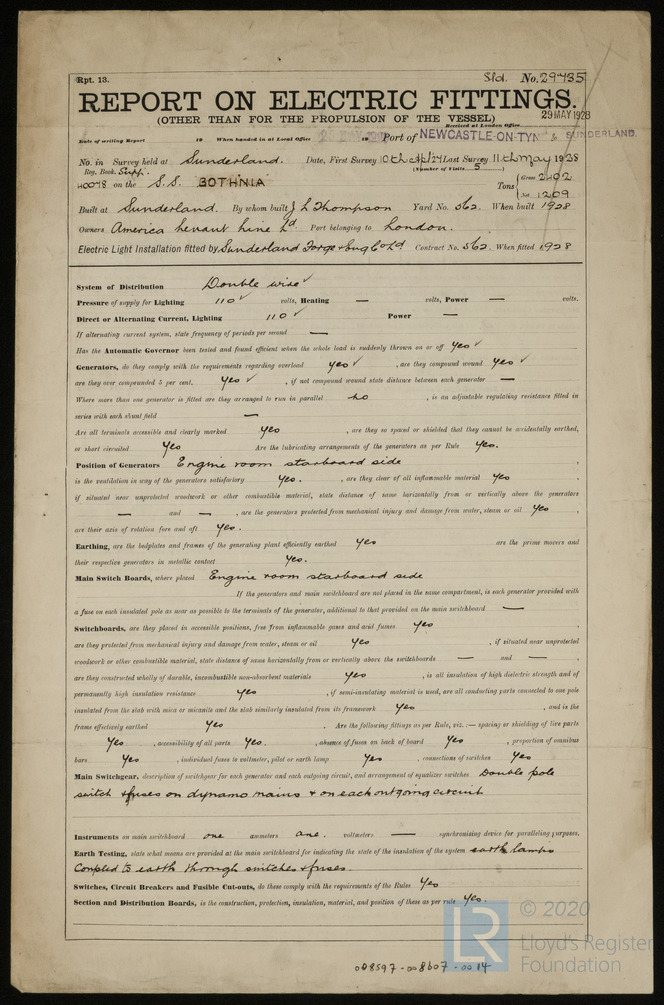 Rpt. 13. Sld. No. 29735
REPORT ON ELECTRIC FITTINGS.
(OTHER THAN FOR THE PROPULSION OF THE VESSEL)
Received at London Office 29 MAY 1928
Date of writing Report 19 When handed in at Local Office 19 Port of NEWCASTLE-ON-TYNE & SUNDERLAND.
No. in Survey held at Sunderland. Date, First Survey 10th Last Survey 11th May 1928
Reg. Book. Supp. (Number of Visits 5
40078 on the S.S. BOTHNIA Tons { Gross 2402
Net 1209
Built at Sunderland. By whom built J L Thompson Yard No. 562. When built 1928
Owners America Levant Line Ld Port belonging to London.
Electric Light Installation fitted by Sunderland Forge & Eng Co Ld Contract No. 562. When fitted 1928
System of Distribution Double wire ✓
Pressure of supply for Lighting 110 ✓ volts, Heating — volts, Power — volts.
Direct or Alternating Current, Lighting 110 ✓ Power —
If alternating current system, state frequency of periods per second —
Has the Automatic Governor been tested and found efficient when the whole load is suddenly thrown on or off Yes ✓
Generators, do they comply with the requirements regarding overload yes ✓ , are they compound wound yes ✓
are they over compounded 5 per cent. Yes ✓ , if not compound wound state distance between each generator —
Where more than one generator is fitted are they arranged to run in parallel no , is an adjustable regulating resistance fitted in
series with each shunt field —
Are all terminals accessible and clearly marked yes , are they so spaced or shielded that they cannot be accidentally earthed,
or short circuited yes Are the lubricating arrangements of the generators as per Rule yes.
Position of Generators Engine room starboard side ,
is the ventilation in way of the generators satisfactory yes. , are they clear of all inflammable material yes ,
if situated near unprotected woodwork or other combustible material, state distance of same horizontally from or vertically above the generators
— and — , are the generators protected from mechanical injury and damage from water, steam or oil yes ,
are their axis of rotation fore and aft yes.
Earthing, are the bedplates and frames of the generating plant efficiently earthed yes are the prime movers and
their respective generators in metallic contact yes.
Main Switch Boards, where placed Engine room starboard side
If the generators and main switchboard are not placed in the same compartment, is each generator provided with
a fuse on each insulated pole as near as possible to the terminals of the generator, additional to that provided on the main switchboard —
Switchboards, are they placed in accessible positions, free from inflammable gases and acid fumes yes ,
are they protected from mechanical injury and damage from water, steam or oil yes , if situated near unprotected
woodwork or other combustible material, state distance of same horizontally from or vertically above the switchboards — and — ,
are they constructed wholly of durable, incombustible non-absorbent materials yes , is all insulation of high dielectric strength and of
permanently high insulation resistance yes , if semi-insulating material is used, are all conducting parts connected to one pole
insulated from the slab with mica or micanite and the slab similarly insulated from its framework yes , and is the
frame effectively earthed yes . Are the following fittings as per Rule, viz. :— spacing or shielding of live parts
yes , accessibility of all parts yes. , absence of fuses on back of board yes , proportion of omnibus
bars yes , individual fuses to voltmeter, pilot or earth lamp yes , connections of switches yes
Main Switchgear, description of switchgear for each generator and each outgoing circuit, and arrangement of equalizer switches Double pole
switch & fuses on dynamo mains & on each outgoing circuit
Instruments on main switchboard one ammeters one. voltmeters — synchronising device for paralleling purposes.
Earth Testing, state what means are provided at the main switchboard for indicating the state of the insulation of the system earth lamps
Coupled to earth through switches & fuses.
Switches, Circuit Breakers and Fusible Cut-outs, do these comply with the requirements of the Rules yes
Section and Distribution Boards, is the construction, protection, insulation, material, and position of these as per rule yes.
LR
© 2020
Lloyd's Register
Foundation
008597-008607-0014